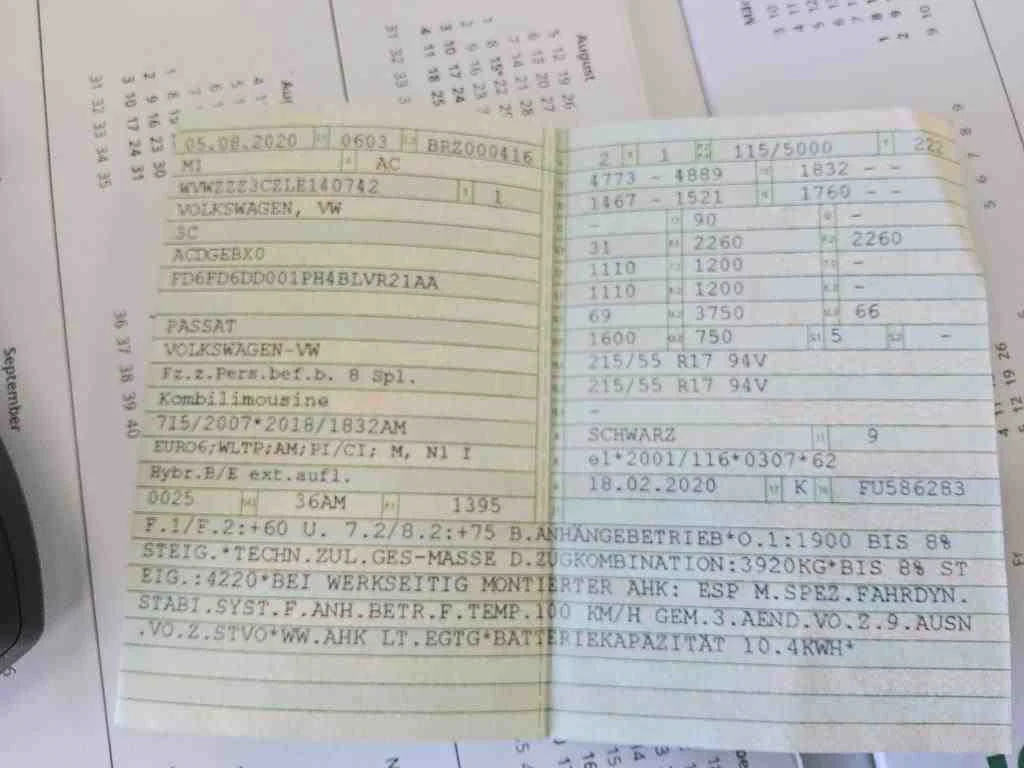 05.08.2020 0603 BRZ000416
M1 AC
WVWZZZ3CZLE140742 1
VOLKSWAGEN, VW
3C
ACDGEBX0
FD6FD6DD001PH4BLVR21AA
PASSAT
VOLKSWAGEN-VW
Fz.z.Pers.bef.b. 8 Spl.
Kombilimousine
715/2007*2018/1832AM
EURO6;WLTP;AM;PI/CI; M, N1 I
Hybr.B/E ext.aufl.
0025 36AM 1395
2 1 115/5000 222
4773 - 4889 1832 - -
1467 - 1521 1760 - -
- 90 -
31 2260 2260
1110 1200 -
1110 1200 -
69 3750 66
1600 750 5 -
215/55 R17 94V
215/55 R17 94V
-
SCHWARZ 9
e1*2001/116*0307*62
18.02.2020 K FU586283
F.1/F.2:+60 U. 7.2/8.2:+75 B.ANHÄNGEBETRIEB*O.1:1900 BIS 8%
STEIG.*TECHN.ZUL.GES-MASSE D.ZUGKOMBINATION:3920KG*BIS 8% ST
EIG.:4220*BEI WERKSEITIG MONTIERTER AHK: ESP M.SPEZ.FAHRDYN.
STABI.SYST.F.ANH.BETR.F.TEMP.100 KM/H GEM.3.AEND.VO.Z.9.AUSN
.VO.Z.STVO*WW.AHK LT.EGTG*BATTERIEKAPAZITÄT 10.4KWH*
August
September
31 32 33 34 35
36 37 38 39 40